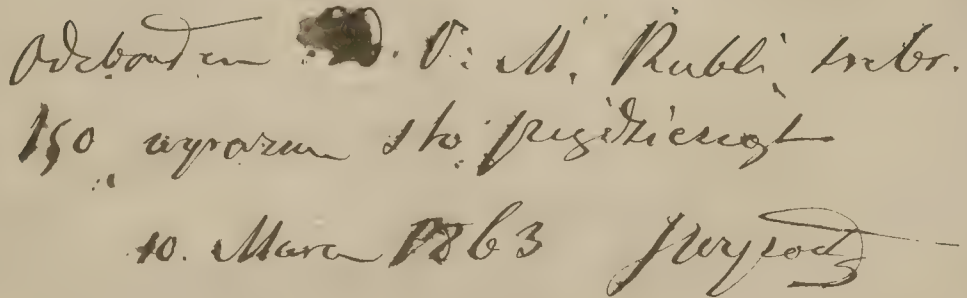 Odebrałem O. M. Rubli srebr.
150 wyrazn sto pięćdziesiąt
10. Marca 1863